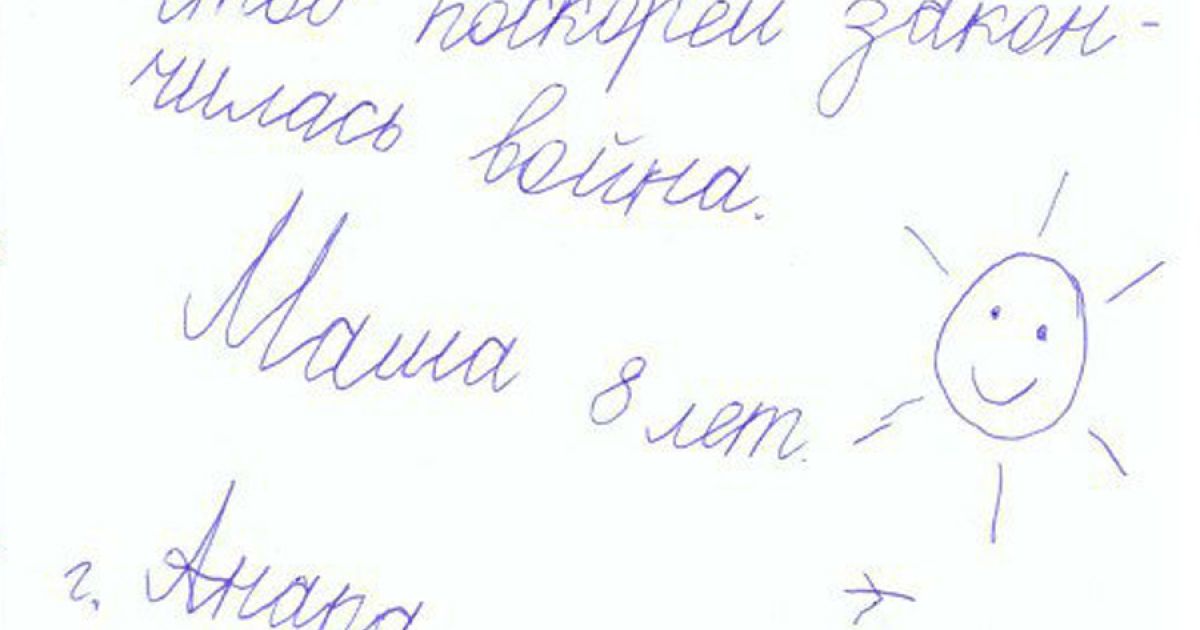 чтоб поскорей закон-
чилась война.
Маша 8 лет.
г. Анапа